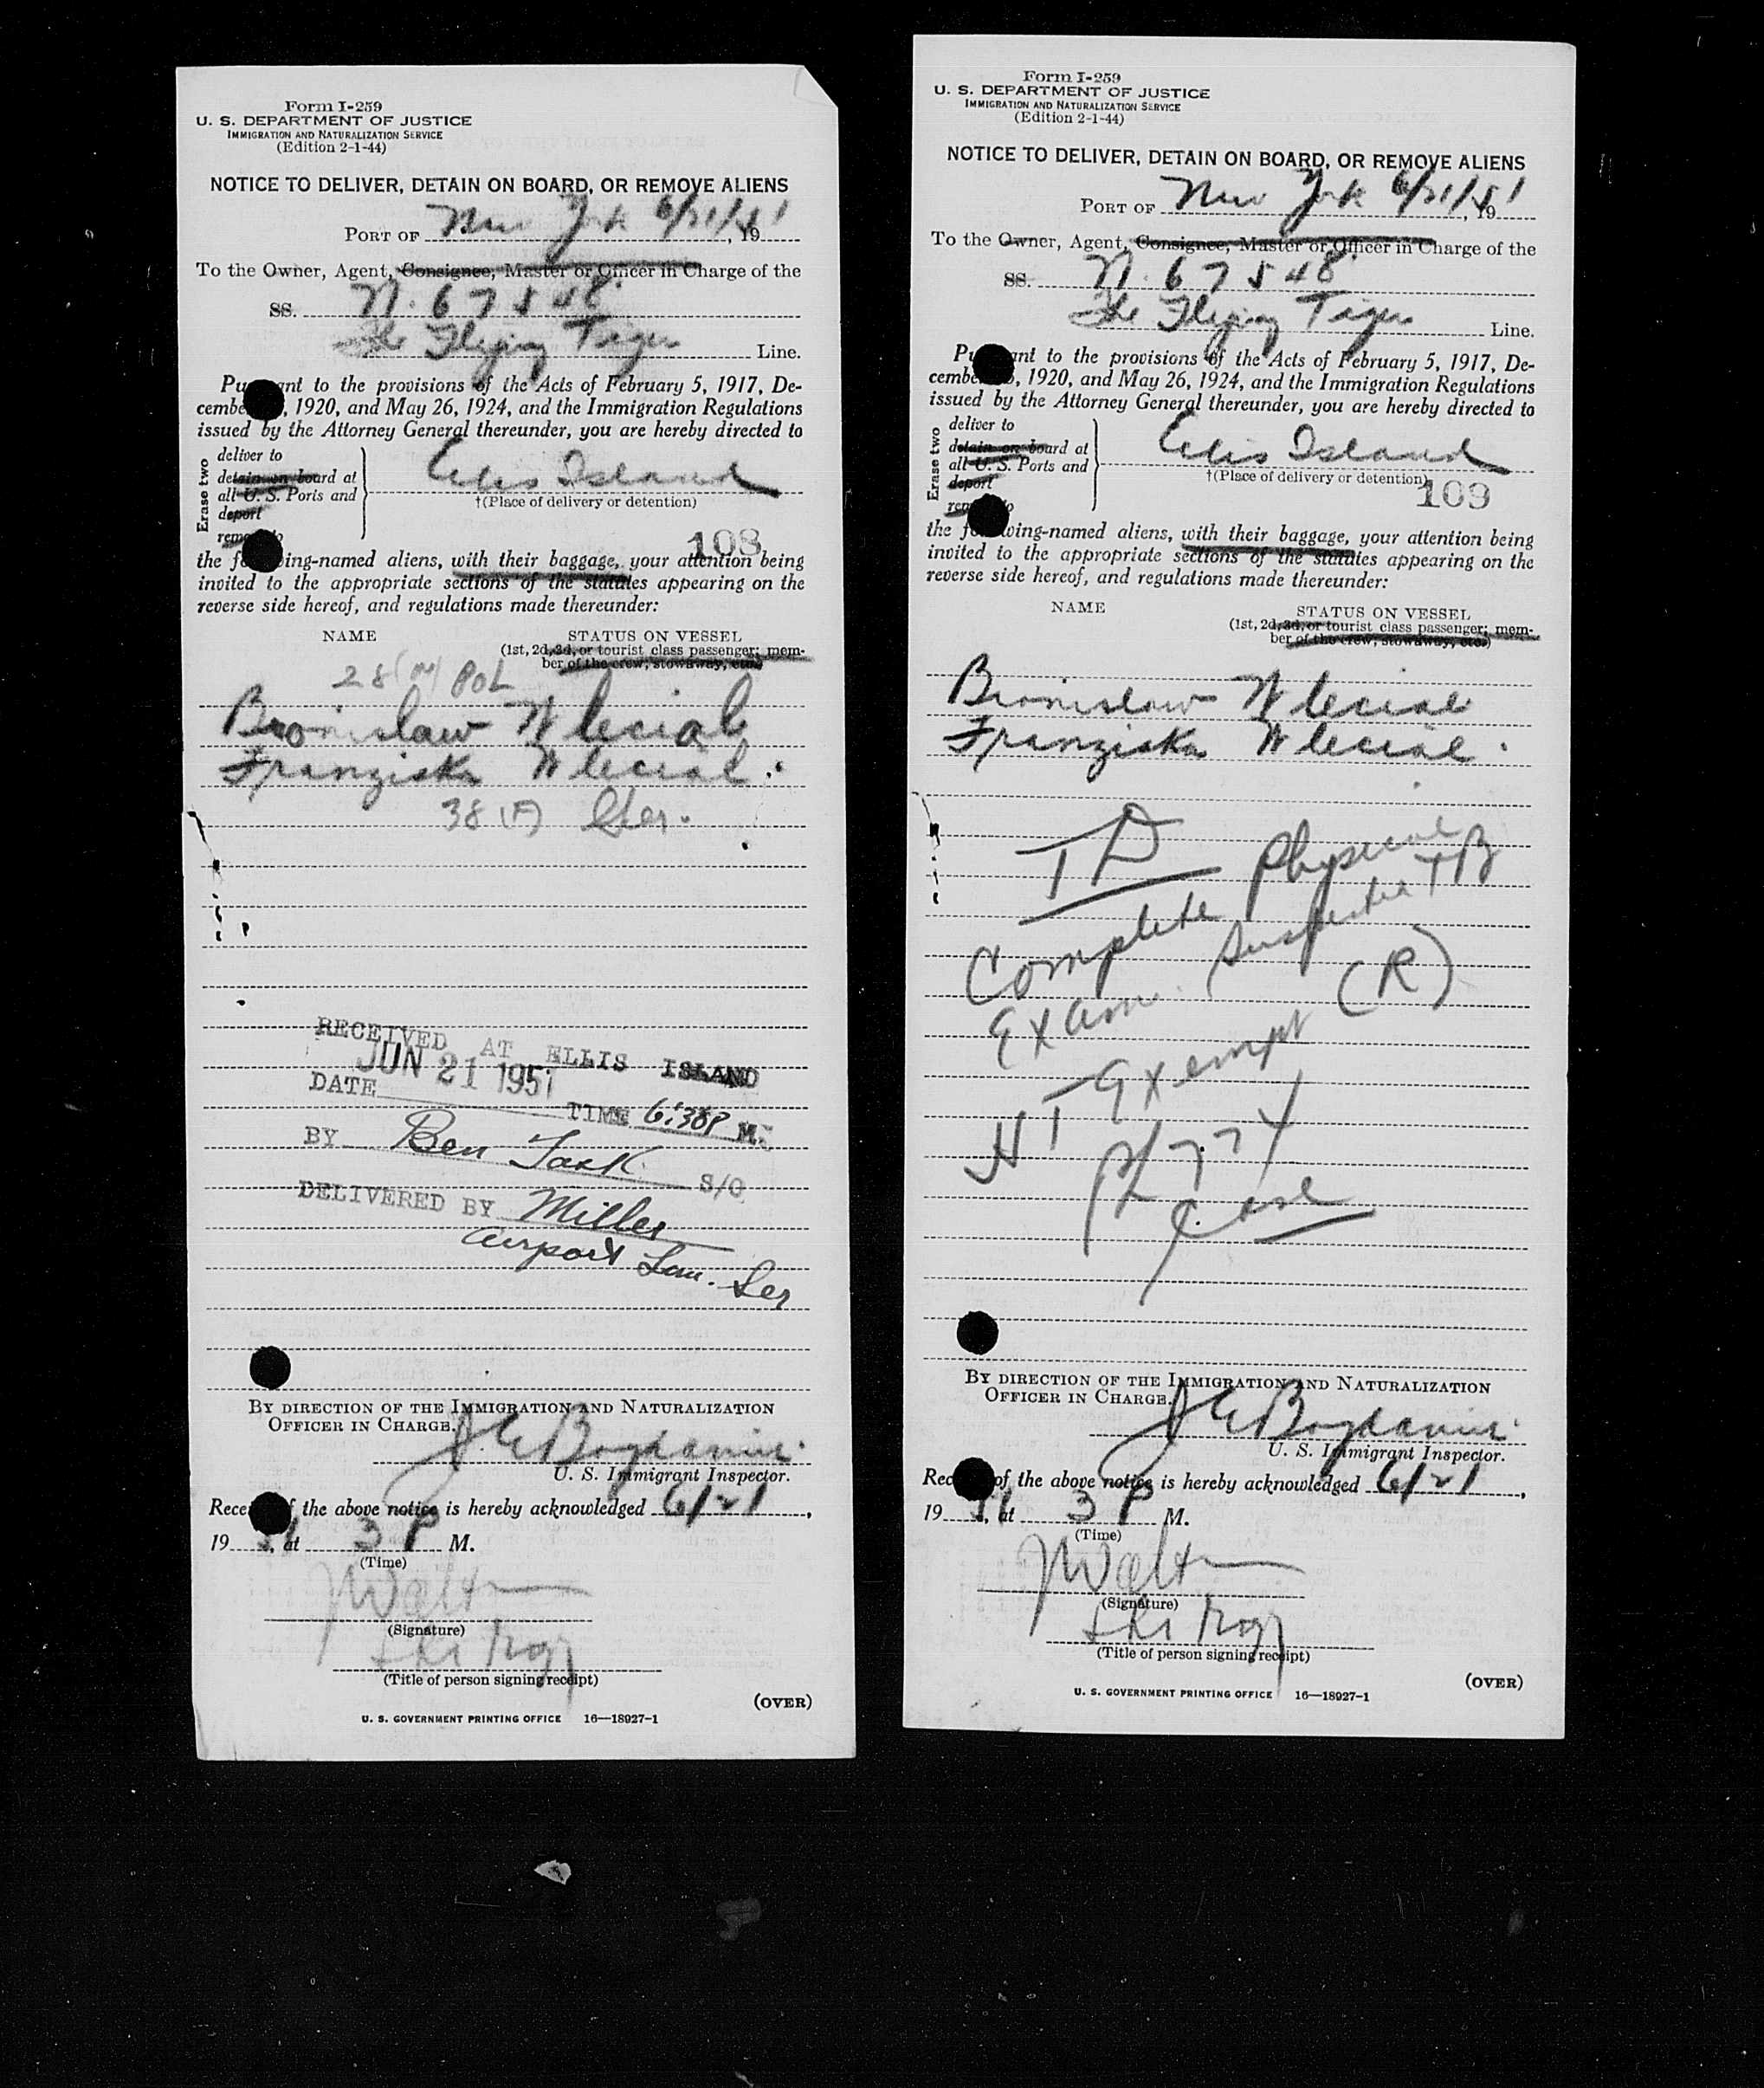 Form I-259
U. S. DEPARTMENT OF JUSTICE
IMMIGRATION AND NATURALIZATION SERVICE
(Edition 2-1-44)
NOTICE TO DELIVER, DETAIN ON BOARD, OR REMOVE ALIENS
PORT OF New York 6/21/51, 19
To the Owner, Agent, Consignee, Master or Officer in Charge of the
SS. N. 67548
The Flying Tiger Line.
Pu ant to the provisions of the Acts of February 5, 1917, De-
cembe , 1920, and May 26, 1924, and the Immigration Regulations
issued by the Attorney General thereunder, you are hereby directed to
Erase two
deliver to
detain on board at
all U. S. Ports and
deport
remo o
Ellis Island
†(Place of delivery or detention)
108
the fo ing-named aliens, with their baggage, your attention being
invited to the appropriate sections of the statutes appearing on the
reverse side hereof, and regulations made thereunder:
NAME
STATUS ON VESSEL
(1st, 2d, 3d, or tourist class passenger; mem-
ber of the crew; stowaway, etc.)
28 (M) POL
Bronislaw Wlecial
Franziska Wlecial
38 (F) Ger.
RECEIVED AT ELLIS ISLAND
JUN 21 1951
DATE TIME 6:30P M.
BY Ben S/O
DELIVERED BY Miller
Airport Ser
BY DIRECTION OF THE IMMIGRATION AND NATURALIZATION
OFFICER IN CHARGE.
U. S. Immigrant Inspector.
Recei f the above notice is hereby acknowledged 6/21,
19 51, at 3 P M.
(Time)
(Signature)
(Title of person signing receipt)
(OVER)
U. S. GOVERNMENT PRINTING OFFICE 16—18927-1
Form I-259
U. S. DEPARTMENT OF JUSTICE
IMMIGRATION AND NATURALIZATION SERVICE
(Edition 2-1-44)
NOTICE TO DELIVER, DETAIN ON BOARD, OR REMOVE ALIENS
PORT OF New York 6/21/51, 19
To the Owner, Agent, Consignee, Master or Officer in Charge of the
SS. N. 67548
The Flying Tiger Line.
Pu ant to the provisions of the Acts of February 5, 1917, De-
cembe , 1920, and May 26, 1924, and the Immigration Regulations
issued by the Attorney General thereunder, you are hereby directed to
Erase two
deliver to
detain on board at
all U. S. Ports and
deport
rem o
Ellis Island
†(Place of delivery or detention)
109
the f wing-named aliens, with their baggage, your attention being
invited to the appropriate sections of the statutes appearing on the
reverse side hereof, and regulations made thereunder:
NAME
STATUS ON VESSEL
(1st, 2d, 3d, or tourist class passenger; mem-
ber of the crew; stowaway, etc.)
Bronislaw Wlecial
Franziska Wlecial
TD
Complete Physical
Exam. (Suspected TB
(R)
HT Exempt
PL 774
Case
BY DIRECTION OF THE IMMIGRATION AND NATURALIZATION
OFFICER IN CHARGE.
U. S. Immigrant Inspector.
Rec of the above notice is hereby acknowledged 6/21,
19 51, at 3 P M.
(Time)
(Signature)
(Title of person signing receipt)
(OVER)
U. S. GOVERNMENT PRINTING OFFICE 16—18927-1